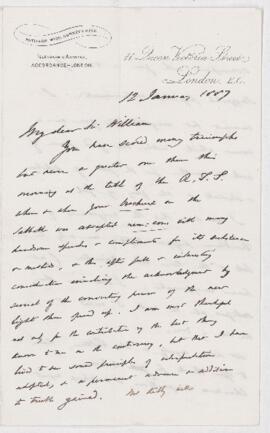 TELEGRAPHIC ADDRESS,
ACCORDANCE-LONDON.
Queen Victoria Street
London E.C.
12 January 1887
My dear Sir William
You have scored many triumphs
but never a greater one than this
morning at the table of the
when your brochure on the
Sabbath was accepted nem: con with many
handsome speeches & compliments for its substance
or method, & the after full & interesting
consideration involving the acknowledgment by
several of the convincing power of the new
light thus opened up. I am most thankful
not only for the contribution of the best thing
known to me on the controversy, but that I have
lived to see sound principles of interpretation
adopted, & a permanent advance or addition
to truth gained.